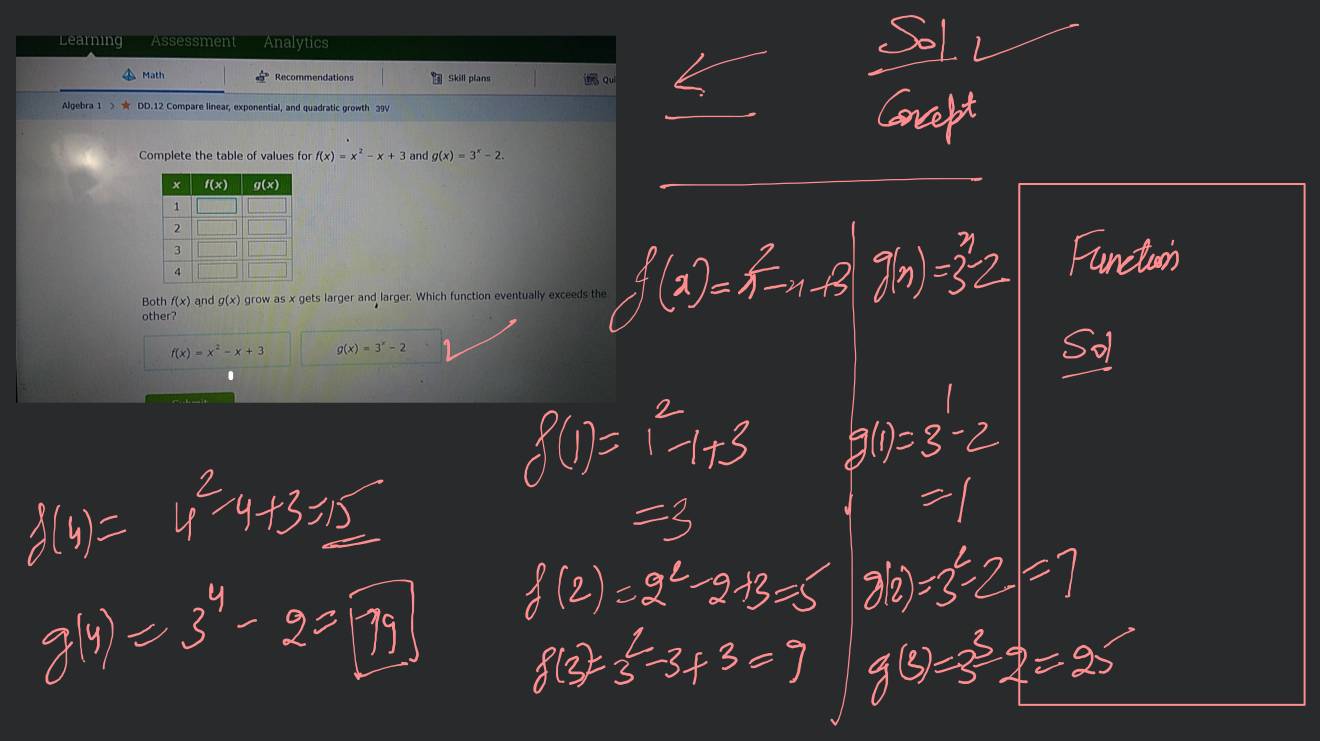 Learning Assessment Analytics
Math Recommendations Skill plans Qui
Algebra 1 > ★ DD.12 Compare linear, exponential, and quadratic growth 39V
Complete the table of values for f(x) = x² − x + 3 and g(x) = 3ˣ − 2.
x f(x) g(x)
1
2
3
4
Both f(x) and g(x) grow as x gets larger and larger. Which function eventually exceeds the
other?
f(x) = x² − x + 3 g(x) = 3ˣ − 2
Submit
Sol
Concept
f(x) = x² − x + 3
g(x) = 3ˣ − 2
Function
Sol
f(1) = 1² − 1 + 3
= 3
g(1) = 3¹ − 2
= 1
f(2) = 2² − 2 + 3 = 5
g(2) = 3² − 2 = 7
f(3) = 3² − 3 + 3 = 9
g(3) = 3³ − 2 = 25
f(4) = 4² − 4 + 3 = 15
g(4) = 3⁴ − 2 = 79